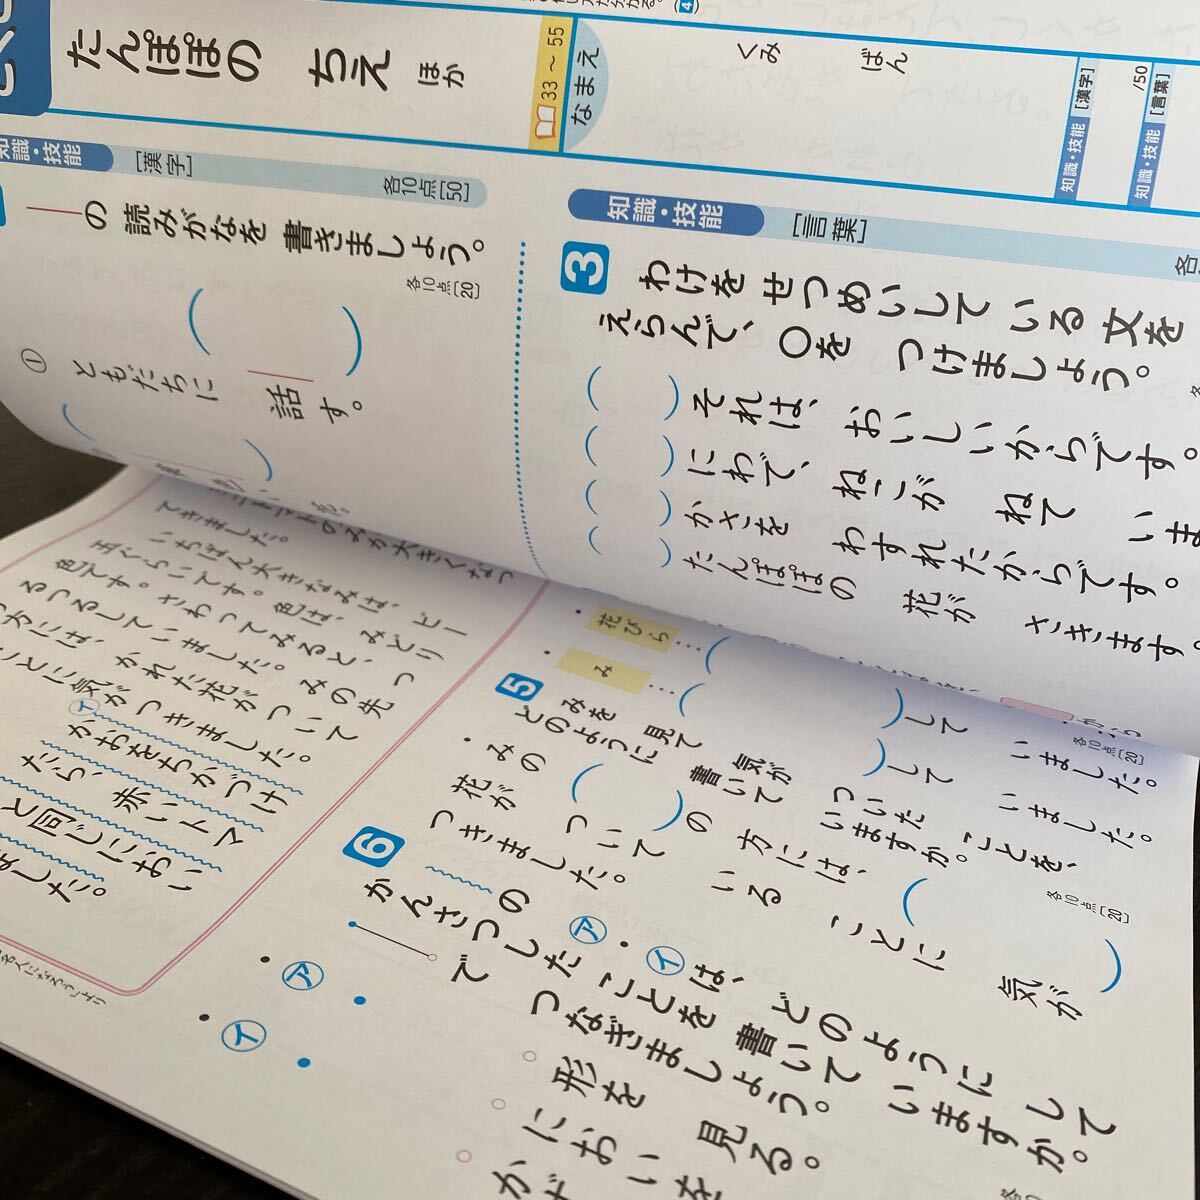 たんぽぽの ちえ ほか
33〜55
なまえ
くみ
ばん
知識・技能 [漢字]
/50
知識・技能 [言葉]
知識・技能
[漢字]
各10点[50]
の 読みがなを 書きましょう。
各10点[20]
① ともだちに 話す。
知識・技能
[言葉]
3 わけを せつめいして いる 文を
えらんで、○を つけましょう。
( ) それは、おいしいからです。
( ) にわで、ねこが ねて いま
( ) かさを わすれたからです。
( ) たんぽぽの 花が さきます。
・花びら…( )して いました。
・み…( )して いました。
各10点[20]
5 みを 見て 気が ついた ことを、
どのように 書いて いますか。
各10点[20]
・みの( )の 方には、( )
花が ついて いる ことに 気が
つきました。
6 の ア・イは、どのように して
かんさつした ことを 書いて いますか。
で つなぎましょう。
ア
イ
形を 見る。
においを
のみが大きくなっ
てきました。
いちばん大きなみは、ビー
玉ぐらいです。色は、みどり
色です。さわってみると、つ
るつるしていました。みの先
方には、かれた花がついて
ことに気がつきました。
イ かおをちかづけ
たら、赤いトマ
と同じにおい
ました。